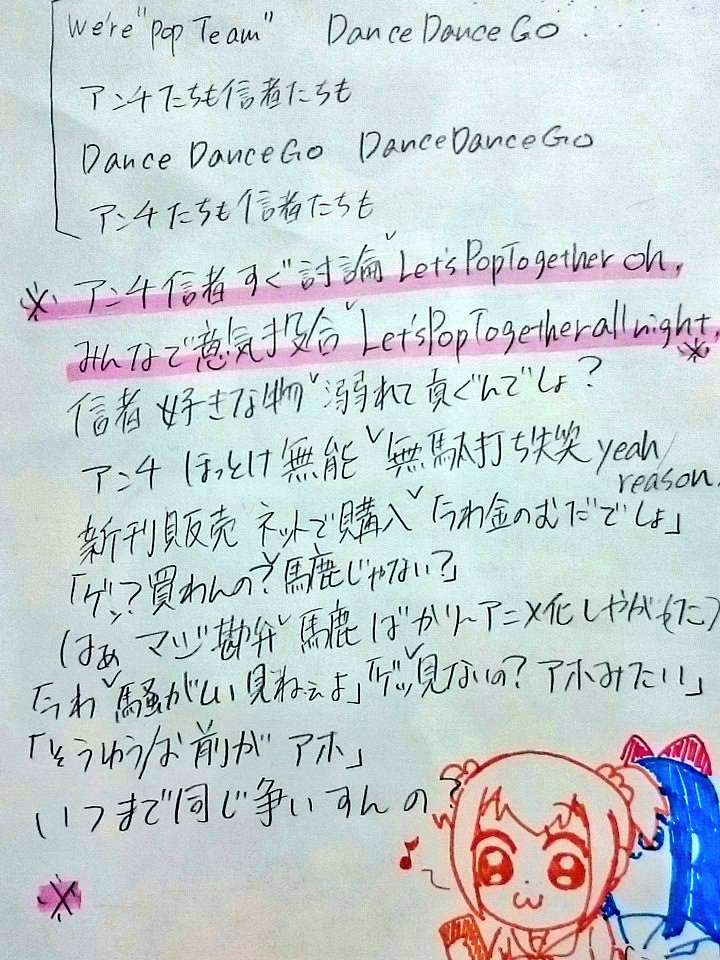 We're "Pop Team" Dance Dance GO
アンチたちも信者たちも
Dance Dance GO Dance Dance GO
アンチたちも信者たちも
※ アンチ信者 すぐ討論 ˅ Let's Pop Together oh,
みんなで意気投合 ˅ Let's Pop Together all night, ※
信者 好きな物 ˅ 溺れて貢ぐんでしょ?
アンチ ほっとけ 無能 ˅ 無駄打ち失笑 yeah/
reason.
新刊販売 ネットで購入 ˅「うわ金のむだでしょ」
「ゲッ?買わんの? ˅ 馬鹿じゃない?」
はぁ マジ勘弁 ˅ 馬鹿ばかりアニメ化しやが(た)
「うわ ˅ 騒がしい見ねぇよ」「ゲッ ˅ 見ないの? アホみたい」
「そうゆうお前が アホ」
いつまで同じ争いすんの?
※